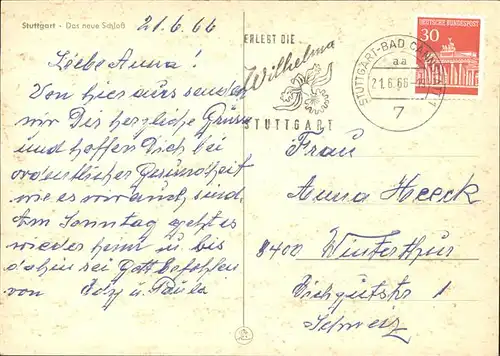 Stuttgart - Das neue Schloß
21.6.66
Liebe Anna!
Von hier aus senden
wir Dir herzliche Grüsse
und hoffen Dich bei
ordentlicher Gesundheit
wie es wir auch sind.
Am Sonntag geht es
wieder heim u. bis
dahin sei Gott befohlen
von Edy u. Paula
ERLEBT DIE
Wilhelma
STUTTGART
STUTTGART-BAD CANNSTATT 1
aa
21.6.66
7
DEUTSCHE BUNDESPOST
30
Frau
Anna Heeck
8400 Winterthur
1
Schweiz